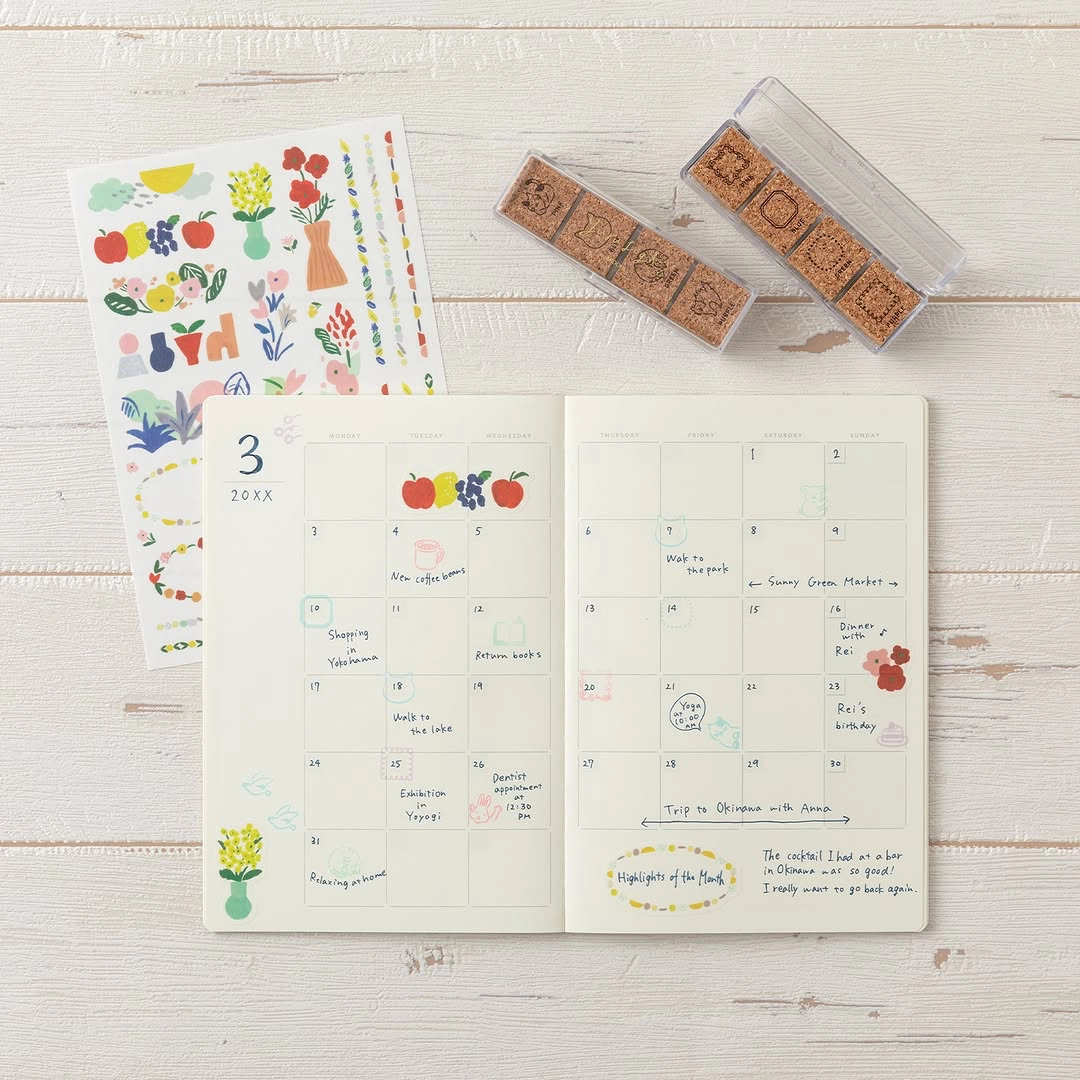 3
20XX
MONDAY TUESDAY WEDNESDAY THURSDAY FRIDAY SATURDAY SUNDAY
1 2
3 4 5 6 7 8 9
New coffee beans
Walk to
the park
← Sunny Green Market →
10 11 12 13 14 15 16
Shopping
in
Yokohama
Return books
Dinner
with
Rei
17 18 19 20 21 22 23
Walk to
the lake
Yoga
at
10:00
AM
Rei's
birthday
24 25 26 27 28 29 30
Exhibition
in
Yoyogi
Dentist
appointment
at
12:30
PM
Trip to Okinawa with Anna
31
Relaxing at home
Highlights of the Month
The cocktail I had at a bar
in Okinawa was so good!
I really want to go back again.